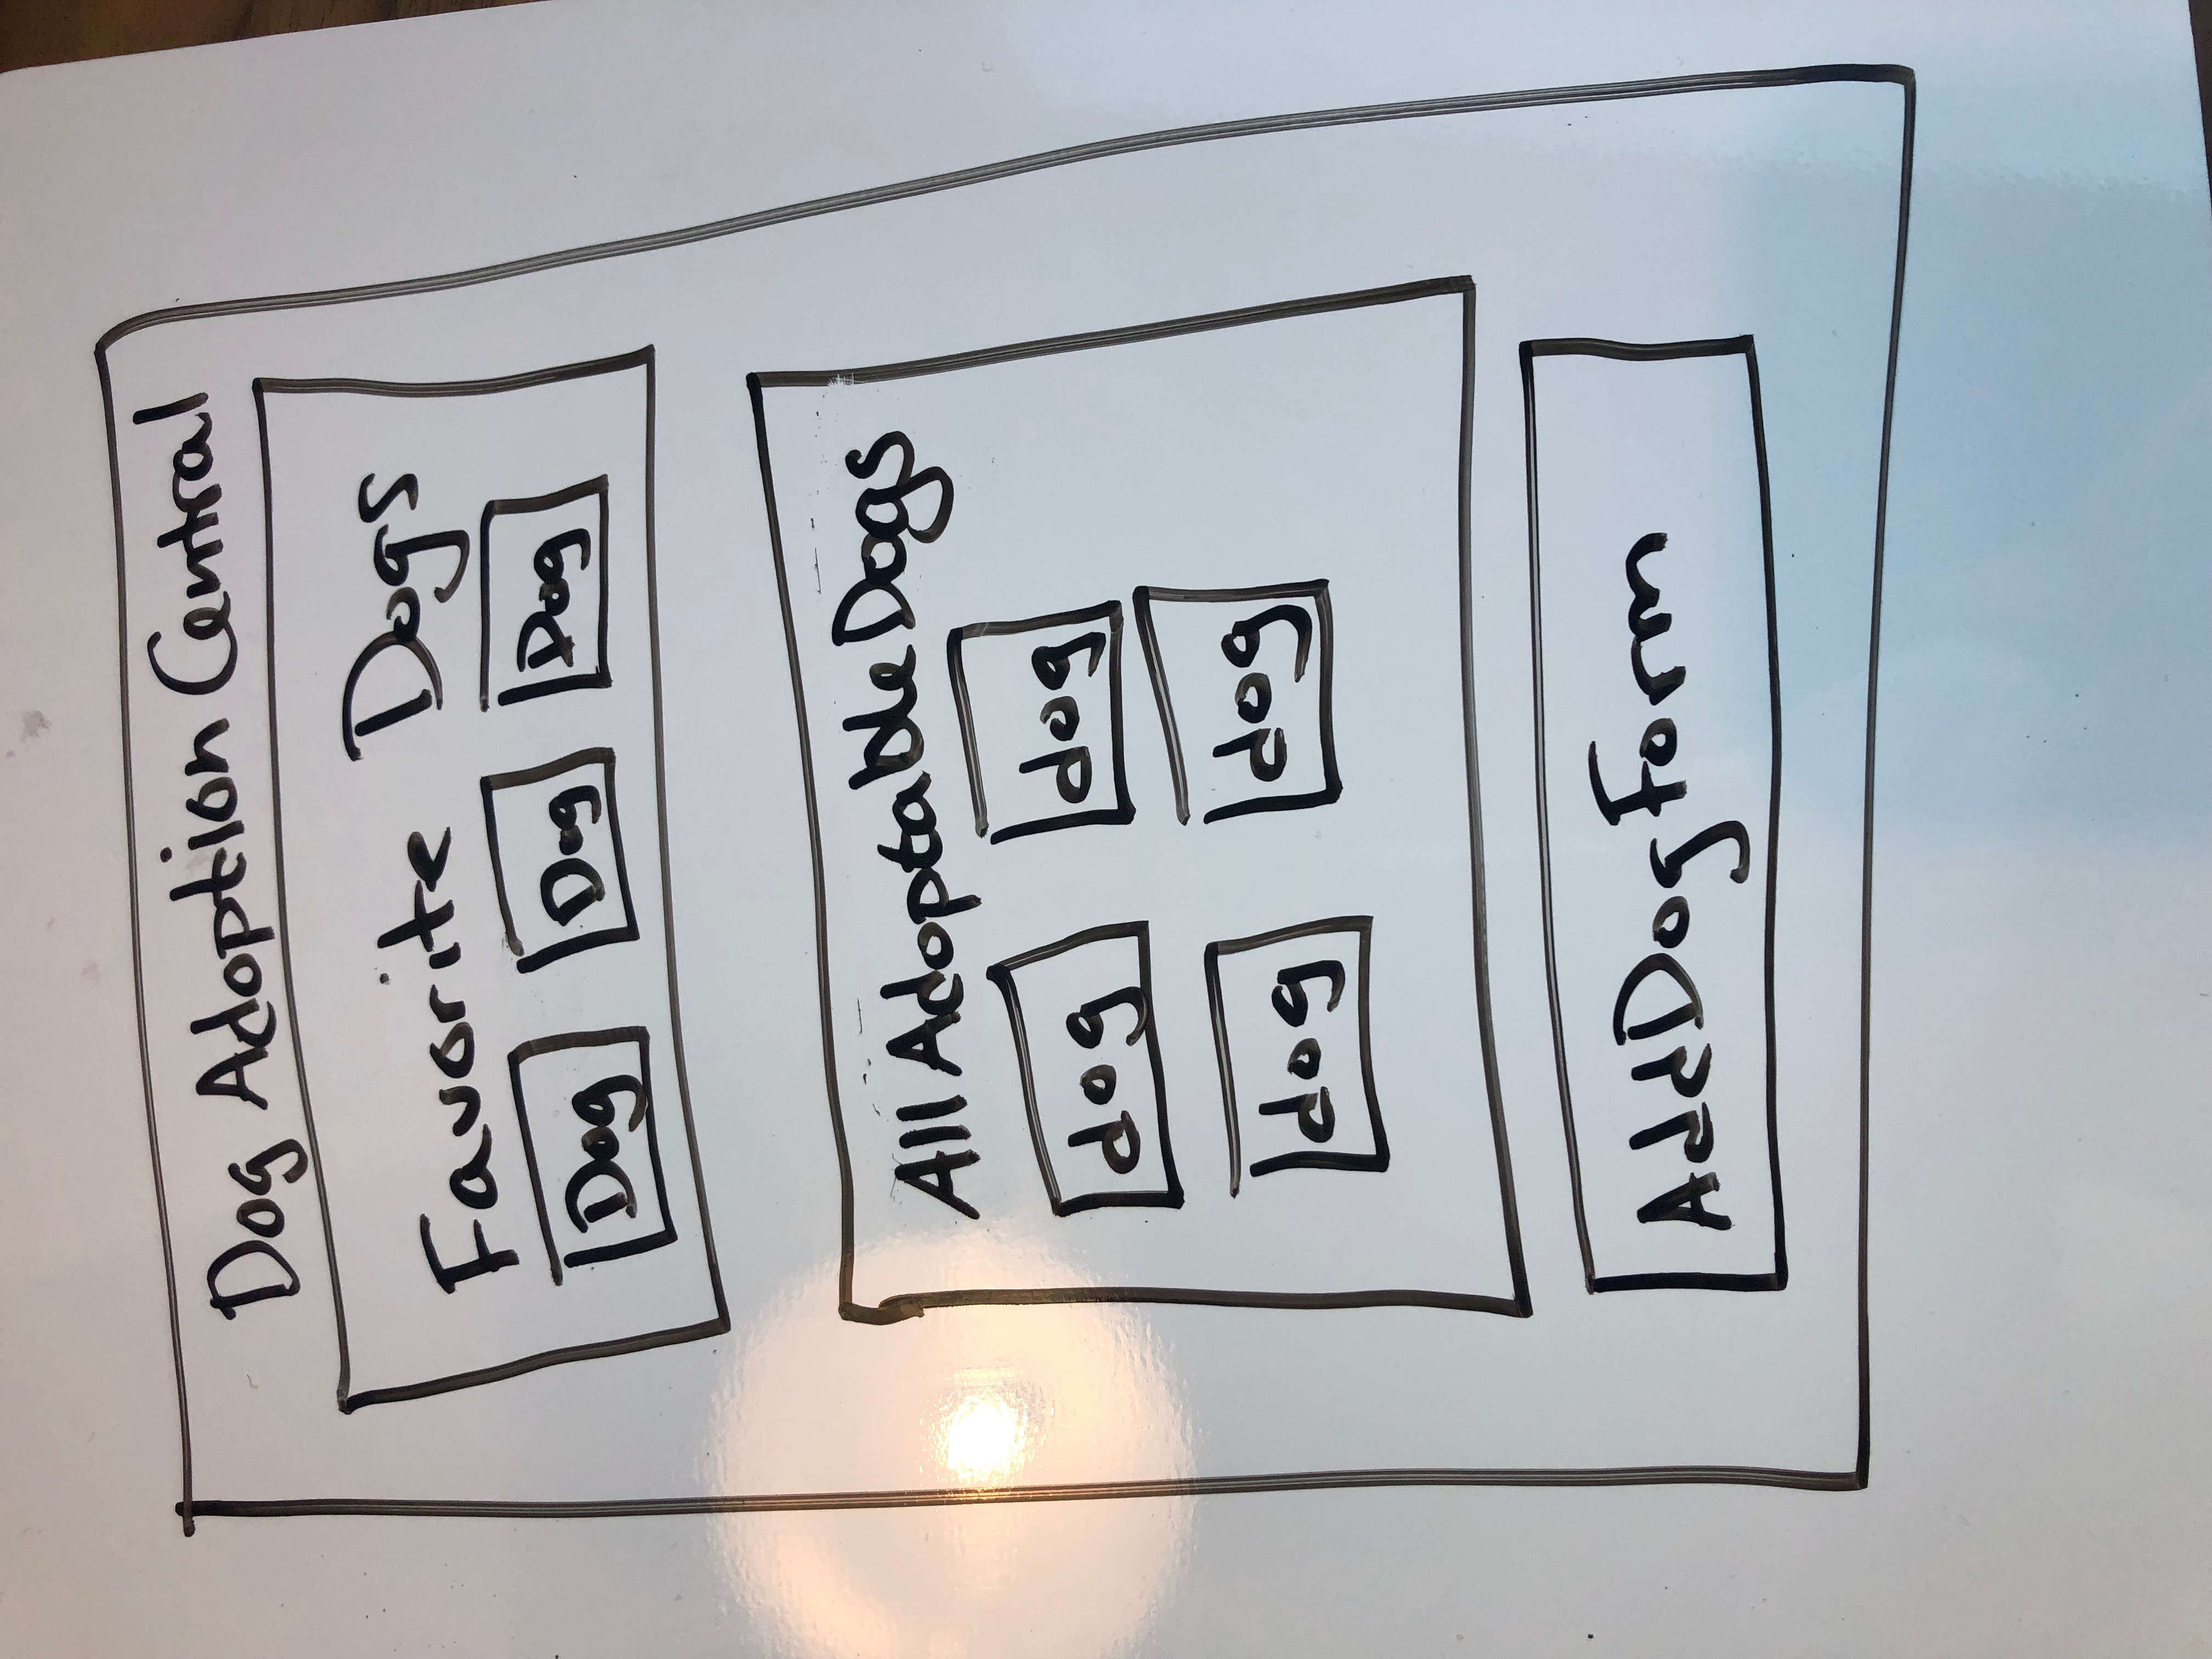 Dog Adoption Central
Favorite Dogs
Dog Dog Dog
All Adoptable Dogs
dog dog
dog dog
AddDogForm